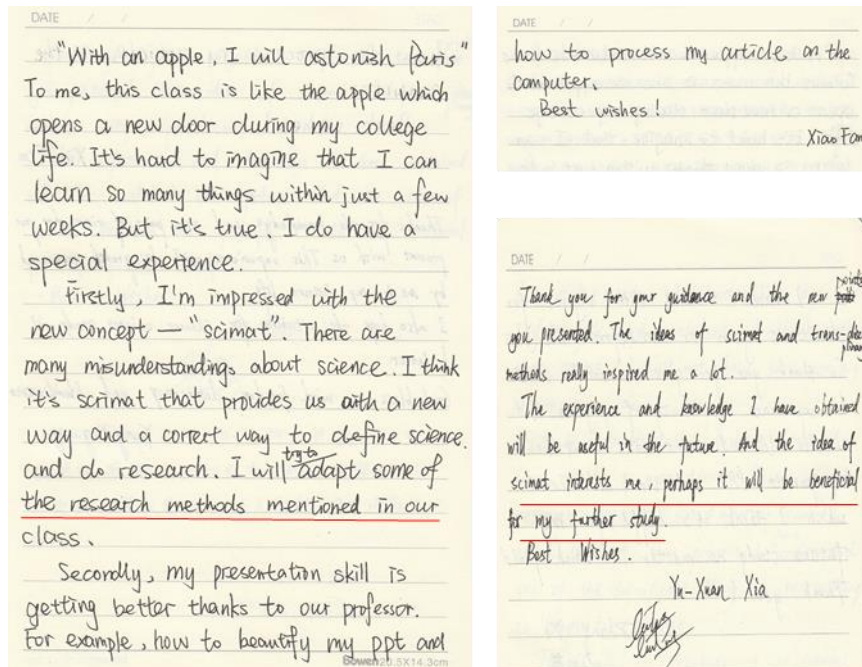 DATE / /
"With an apple, I will astonish Paris"
To me, this class is like the apple which
opens a new door during my college
life. It's hard to imagine that I can
learn so many things within just a few
weeks. But it's true. I do have a
special experience.
Firstly, I'm impressed with the
new concept — "scimat". There are
many misunderstandings about science. I think
it's scrimat that provides us with a new
way and a correct way to define science
and do research. I will try to adapt some of
the research methods mentioned in our
class.
Secondly, my presentation skill is
getting better thanks to our professor.
For example, how to beautify my ppt and
Bowen20.5X14.3cm
DATE / /
how to process my article on the
computer.
Best wishes!
Xiao Fan
DATE / /
Thank you for your guidance and the new points
you presented. The ideas of scimat and trans-disciplinary
methods really inspired me a lot.
The experience and knowledge I have obtained
will be useful in the future. And the idea of
scimat interests me, perhaps it will be beneficial
for my further study.
Best Wishes.
Yu-Xuan Xia